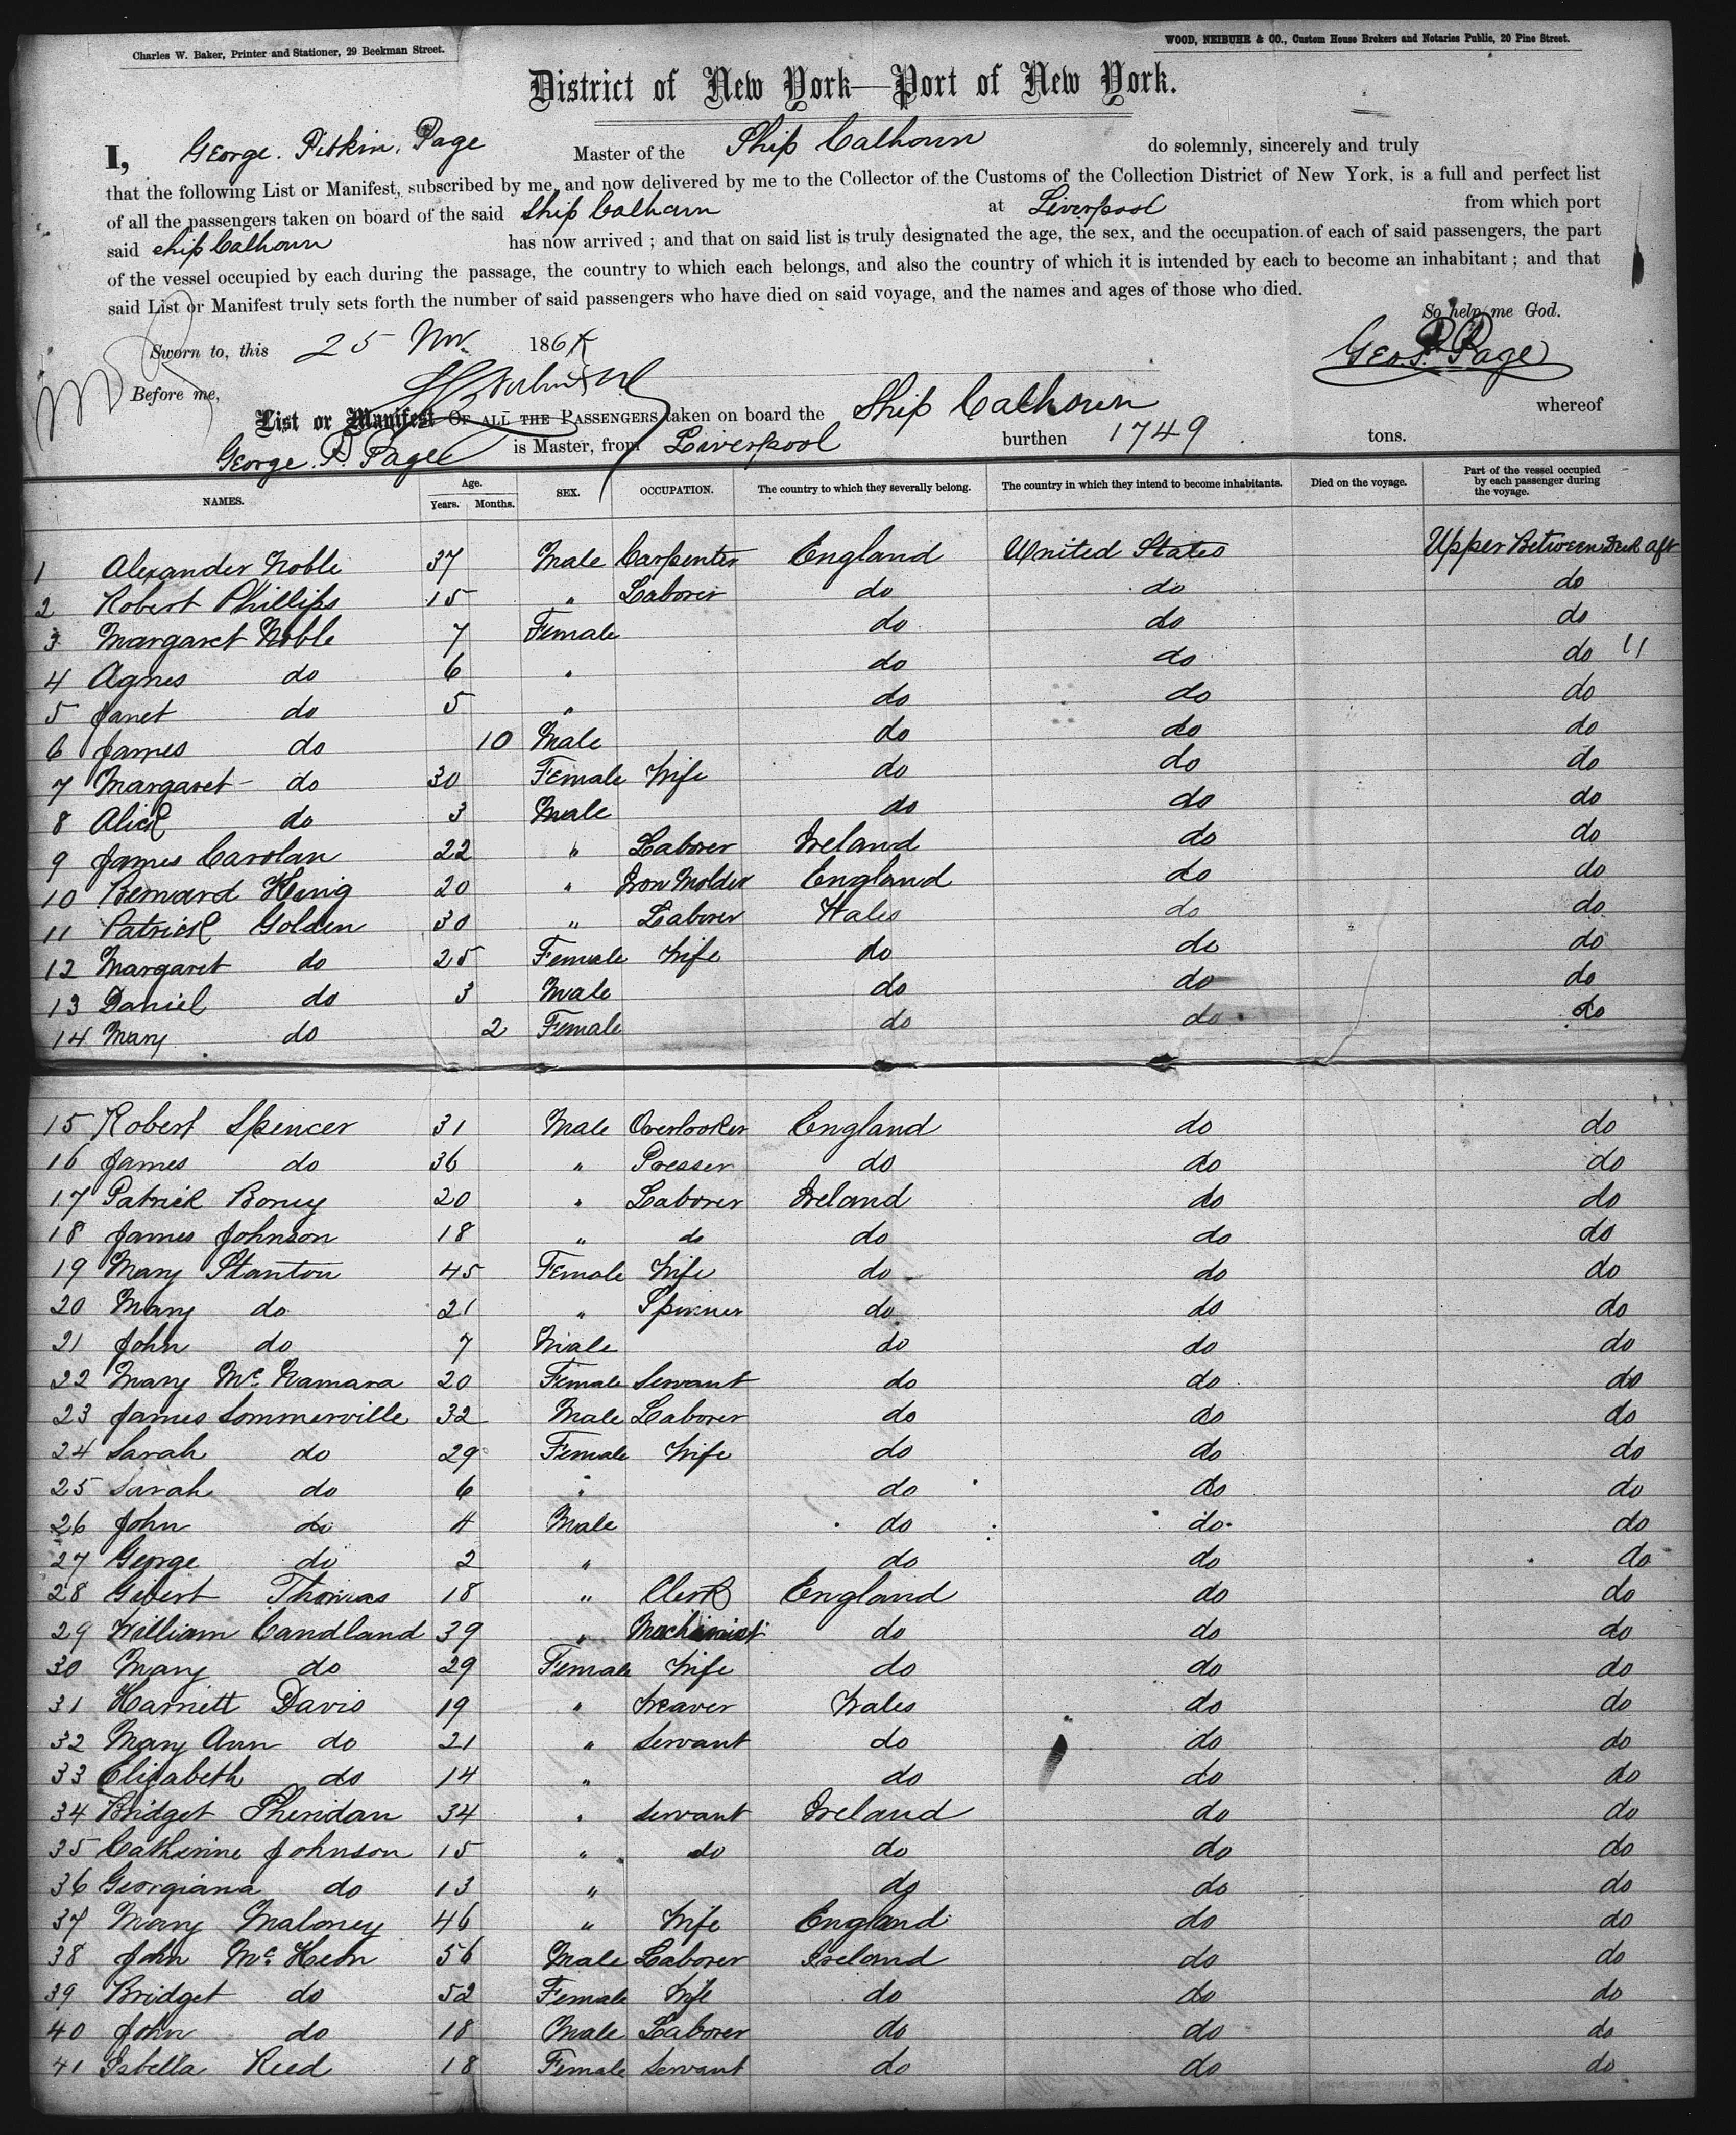 Charles W. Baker, Printer and Stationer, 29 Beekman Street.
WOOD, NEIBUHR & CO., Custom House Brokers and Notaries Public, 20 Pine Street.
District of New York—Port of New York.
I, George. Pitkin. Page Master of the Ship Calhoun do solemnly, sincerely and truly
that the following List or Manifest, subscribed by me, and now delivered by me to the Collector of the Customs of the Collection District of New York, is a full and perfect list
of all the passengers taken on board of the said Ship Calhoun at Liverpool from which port
said Ship Calhoun has now arrived ; and that on said list is truly designated the age, the sex, and the occupation of each of said passengers, the part
of the vessel occupied by each during the passage, the country to which each belongs, and also the country of which it is intended by each to become an inhabitant ; and that
said List or Manifest truly sets forth the number of said passengers who have died on said voyage, and the names and ages of those who died.
So help me God.
Sworn to, this 25 Nov. 1864
Geo. P. Page
Before me,
List or Manifest OF ALL THE PASSENGERS taken on board the Ship Calhoun whereof
George. P. Page is Master, from Liverpool burthen 1749 tons.
NAMES. Age. Years. Months. SEX. OCCUPATION. The country to which they severally belong. The country in which they intend to become inhabitants. Died on the voyage. Part of the vessel occupied by each passenger during the voyage.
1 Alexander Noble 37 Male Carpenter England United States Upper Between Deck aft
2 Robert Phillips 15 " Laborer do do do
3 Margaret Noble 7 Female do do do
4 Agnes do 6 " do do do 11
5 Janet do 5 " do do do
6 James do 10 Male do do do
7 Margaret do 30 Female Wife do do do
8 Alick do 3 Male do do do
9 James Carolan 22 " Laborer Ireland do do
10 Bernard King 20 " Iron Molder England do do
11 Patrick Golden 30 " Laborer Wales do do
12 Margaret do 25 Female Wife do do do
13 Daniel do 3 Male do do do
14 Mary do 2 Female do do do
15 Robert Spencer 31 Male Overlooker England do do
16 James do 36 " Presser do do do
17 Patrick Boney 20 " Laborer Ireland do do
18 James Johnson 18 " do do do do
19 Mary Stanton 45 Female Wife do do do
20 Mary do 21 " Spinner do do do
21 John do 7 Male do do do
22 Mary Mc. Namara 20 Female Servant do do do
23 James Sommerville 32 Male Laborer do do do
24 Sarah do 29 Female Wife do do do
25 Sarah do 6 " do do do
26 John do 4 Male do do do
27 George do 2 " do do do
28 Gibert Thomas 18 " Clerk England do do
29 William Candland 39 " Machinist do do do
30 Mary do 29 Female Wife do do do
31 Harriett Davis 19 " Weaver Wales do do
32 Mary Ann do 21 " Servant do do do
33 Elizabeth do 14 " do do do
34 Bridget Sheridan 34 " Servant Ireland do do
35 Catherine Johnson 15 " do do do do
36 Georgiana do 13 " do do do
37 Mary Maloney 46 " Wife England do do
38 John Mc. Keon 56 Male Laborer Ireland do do
39 Bridget do 52 Female Wife do do do
40 John do 18 Male Laborer do do do
41 Isbella Reed 18 Female Servant do do do